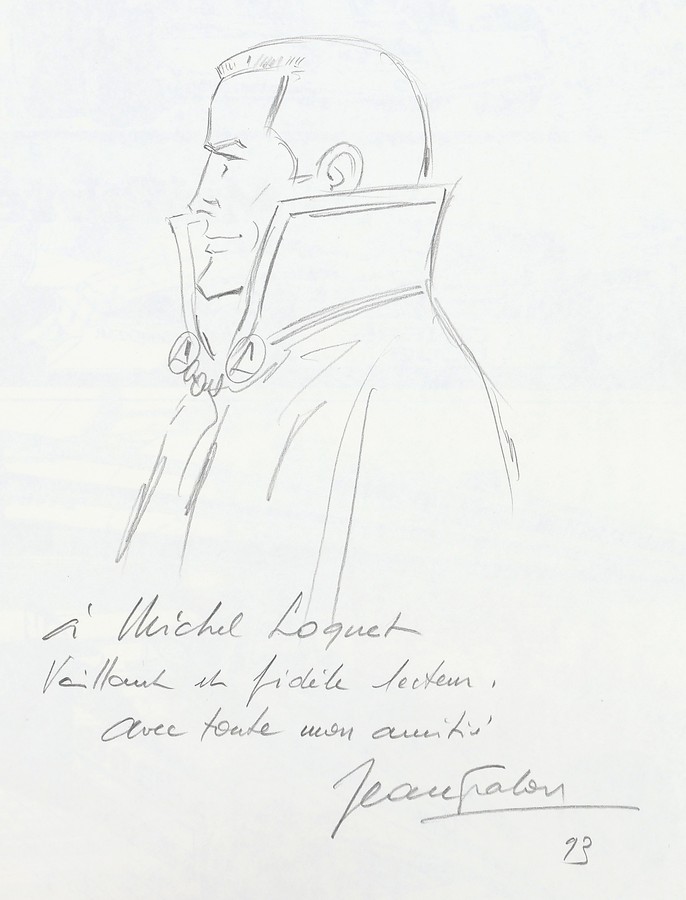 à Michel Loquet
Vaillant et fidèle lecteur.
avec toute mon amitié
Jean Graton
93